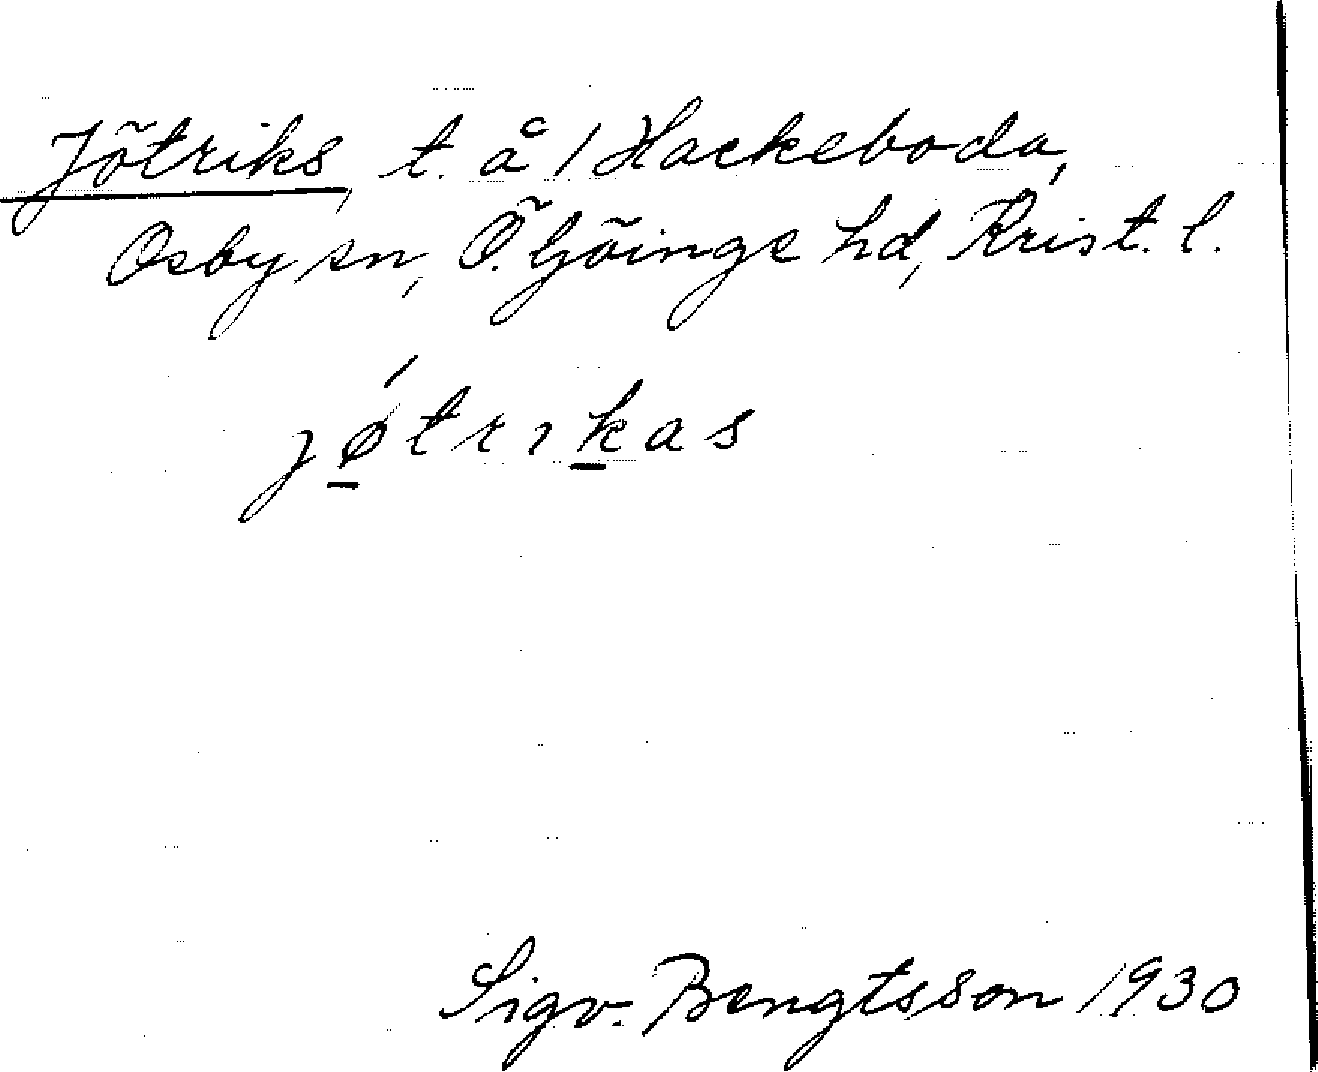 Jötriks, t. å 1 Hackeboda,
Osby sn, Ö. Göinge hd, Krist. l.
jǿ̱trıḵas
Sigv. Bengtsson 1930